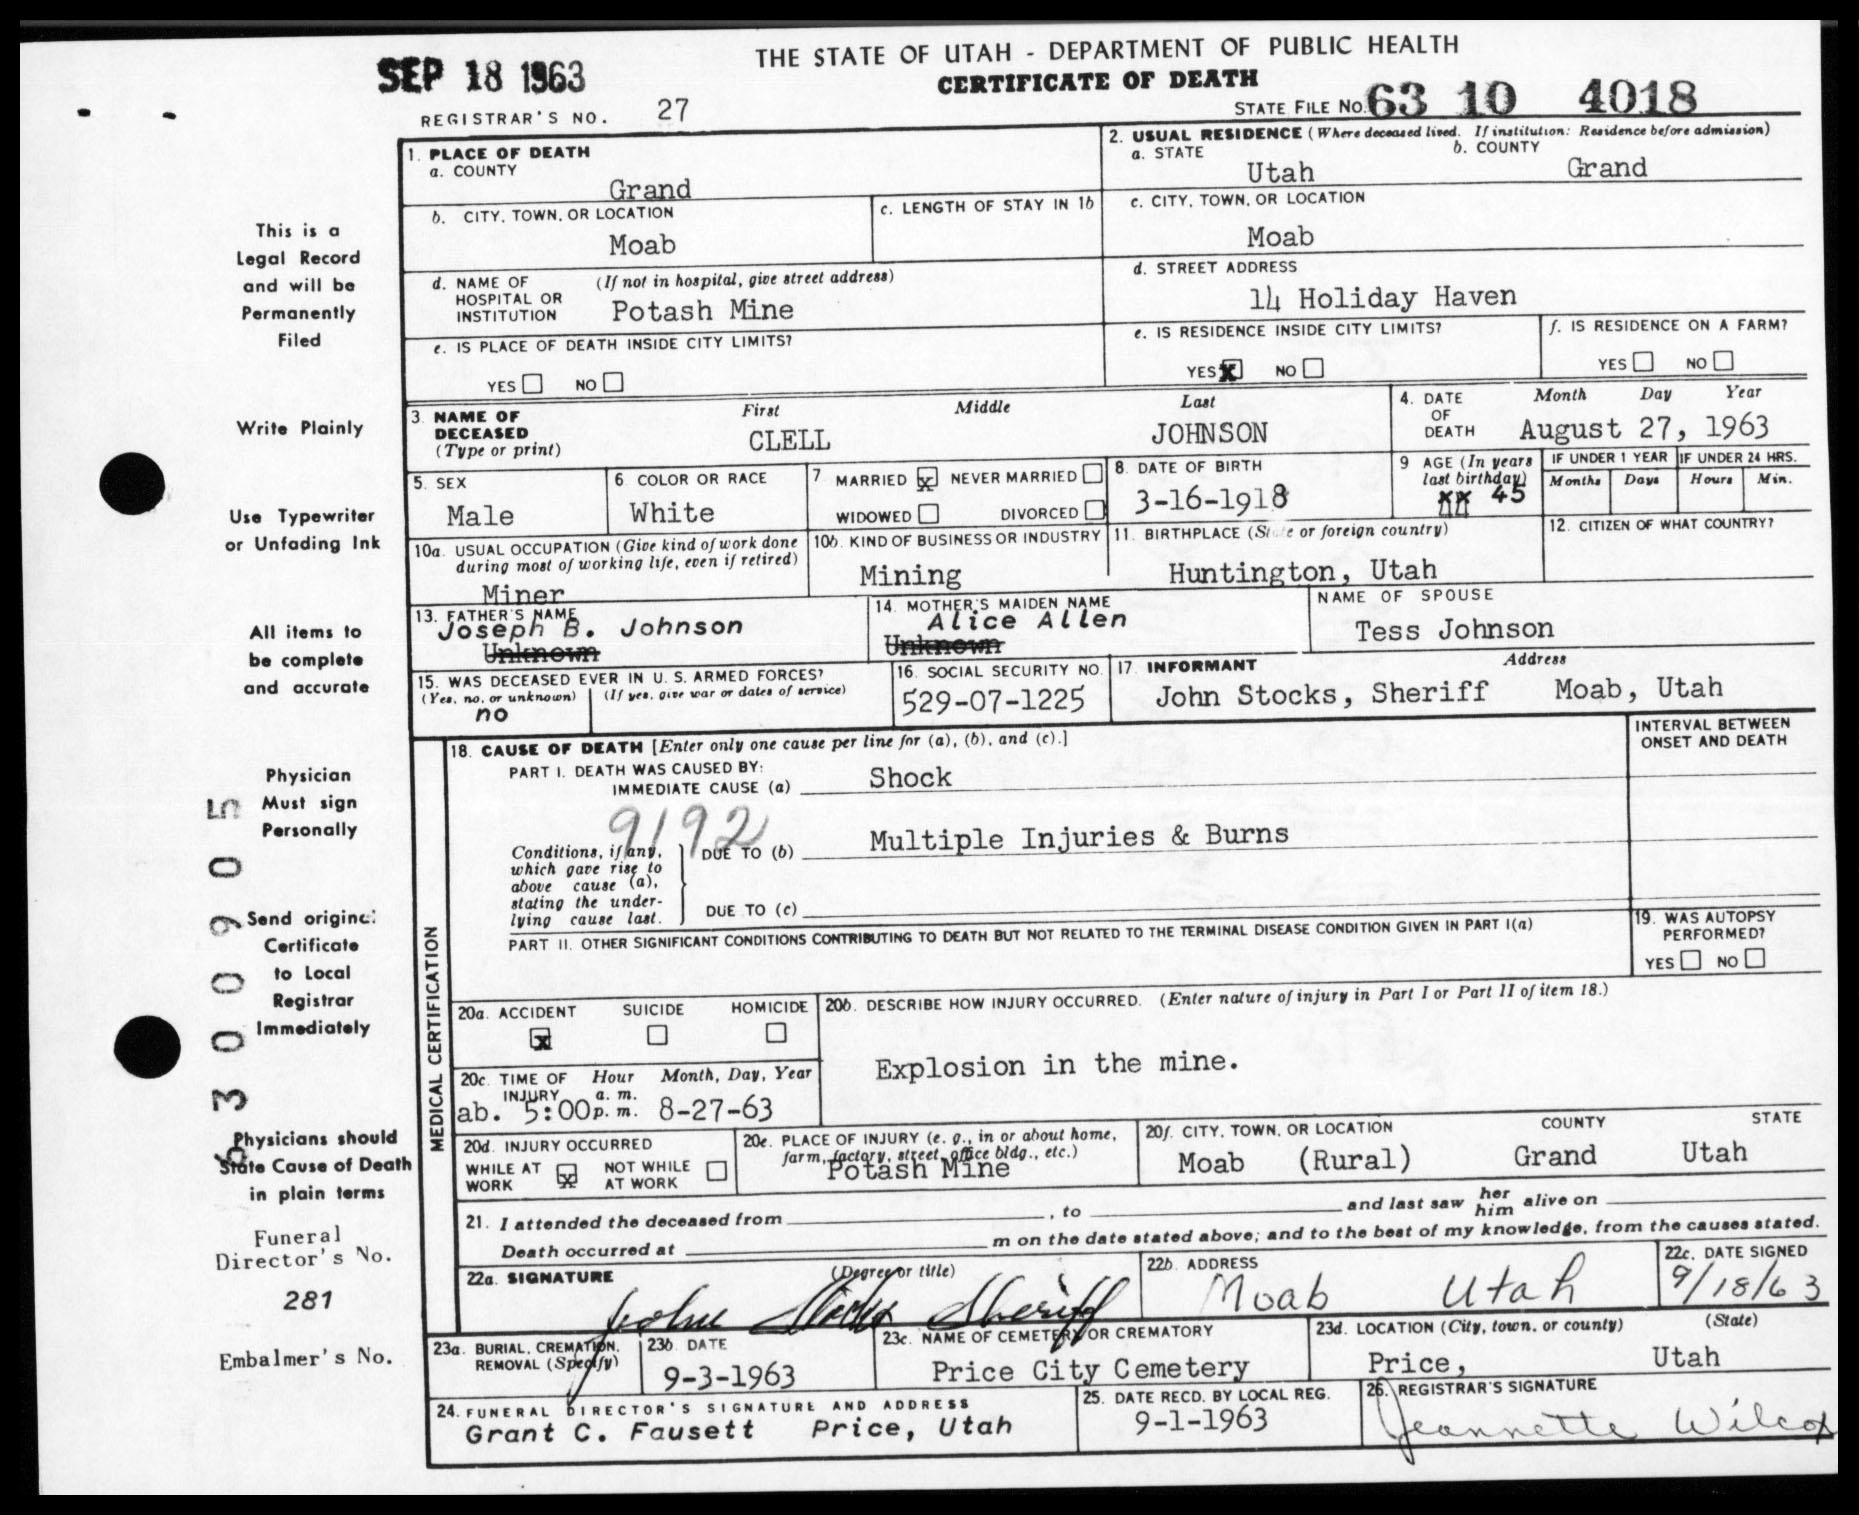 THE STATE OF UTAH - DEPARTMENT OF PUBLIC HEALTH
SEP 18 1963
CERTIFICATE OF DEATH
STATE FILE NO. 63 10 4018
REGISTRAR'S NO. 27
1. PLACE OF DEATH
a. COUNTY
Grand
2. USUAL RESIDENCE (Where deceased lived. If institution: Residence before admission)
a. STATE
Utah
b. COUNTY
Grand
b. CITY, TOWN, OR LOCATION
Moab
c. LENGTH OF STAY IN 1b
c. CITY, TOWN, OR LOCATION
Moab
d. NAME OF HOSPITAL OR INSTITUTION
(If not in hospital, give street address)
Potash Mine
d. STREET ADDRESS
14 Holiday Haven
e. IS PLACE OF DEATH INSIDE CITY LIMITS?
YES NO
e. IS RESIDENCE INSIDE CITY LIMITS?
YES X NO
f. IS RESIDENCE ON A FARM?
YES NO
3. NAME OF DECEASED (Type or print)
First Middle Last
CLELL JOHNSON
4. DATE OF DEATH
Month Day Year
August 27, 1963
5. SEX
Male
6 COLOR OR RACE
White
7 MARRIED X NEVER MARRIED
WIDOWED DIVORCED
8. DATE OF BIRTH
3-16-1918
9 AGE (In years last birthday)
45
IF UNDER 1 YEAR
Months Days
IF UNDER 24 HRS.
Hours Min.
10a. USUAL OCCUPATION (Give kind of work done during most of working life, even if retired)
Miner
10b. KIND OF BUSINESS OR INDUSTRY
Mining
11. BIRTHPLACE (State or foreign country)
Huntington, Utah
12. CITIZEN OF WHAT COUNTRY?
13. FATHER'S NAME
Joseph B. Johnson
Unknown
14. MOTHER'S MAIDEN NAME
Alice Allen
Unknown
NAME OF SPOUSE
Tess Johnson
15. WAS DECEASED EVER IN U. S. ARMED FORCES?
(Yes, no, or unknown) (If yes, give war or dates of service)
no
16. SOCIAL SECURITY NO.
529-07-1225
17. INFORMANT Address
John Stocks, Sheriff Moab, Utah
MEDICAL CERTIFICATION
18. CAUSE OF DEATH [Enter only one cause per line for (a), (b), and (c).]
INTERVAL BETWEEN ONSET AND DEATH
PART I. DEATH WAS CAUSED BY:
IMMEDIATE CAUSE (a) Shock
9192
Conditions, if any, which gave rise to above cause (a), stating the underlying cause last.
DUE TO (b) Multiple Injuries & Burns
DUE TO (c)
PART II. OTHER SIGNIFICANT CONDITIONS CONTRIBUTING TO DEATH BUT NOT RELATED TO THE TERMINAL DISEASE CONDITION GIVEN IN PART I(a)
19. WAS AUTOPSY PERFORMED?
YES NO
20a. ACCIDENT SUICIDE HOMICIDE
X
20b. DESCRIBE HOW INJURY OCCURRED. (Enter nature of injury in Part I or Part II of item 18.)
Explosion in the mine.
20c. TIME OF INJURY Hour a. m. p. m. Month, Day, Year
ab. 5:00 8-27-63
20d. INJURY OCCURRED
WHILE AT WORK X NOT WHILE AT WORK
20e. PLACE OF INJURY (e. g., in or about home, farm, factory, street, office bldg., etc.)
Potash Mine
20f. CITY, TOWN, OR LOCATION COUNTY STATE
Moab (Rural) Grand Utah
21. I attended the deceased from , to and last saw her him alive on
Death occurred at m on the date stated above; and to the best of my knowledge, from the causes stated.
22a. SIGNATURE (Degree or title)
John Stocks Sheriff
22b. ADDRESS
Moab Utah
22c. DATE SIGNED
9/18/63
23a. BURIAL, CREMATION, REMOVAL (Specify)
23b. DATE
9-3-1963
23c. NAME OF CEMETERY OR CREMATORY
Price City Cemetery
23d. LOCATION (City, town, or county) (State)
Price, Utah
24. FUNERAL DIRECTOR'S SIGNATURE AND ADDRESS
Grant C. Fausett Price, Utah
25. DATE RECD. BY LOCAL REG.
9-1-1963
26. REGISTRAR'S SIGNATURE
Jeannette Wilcox
This is a
Legal Record
and will be
Permanently
Filed
Write Plainly
Use Typewriter
or Unfading Ink
All items to
be complete
and accurate
Physician
Must sign
Personally
Send original
Certificate
to Local
Registrar
Immediately
Physicians should
State Cause of Death
in plain terms
Funeral
Director's No.
281
Embalmer's No.
6300905